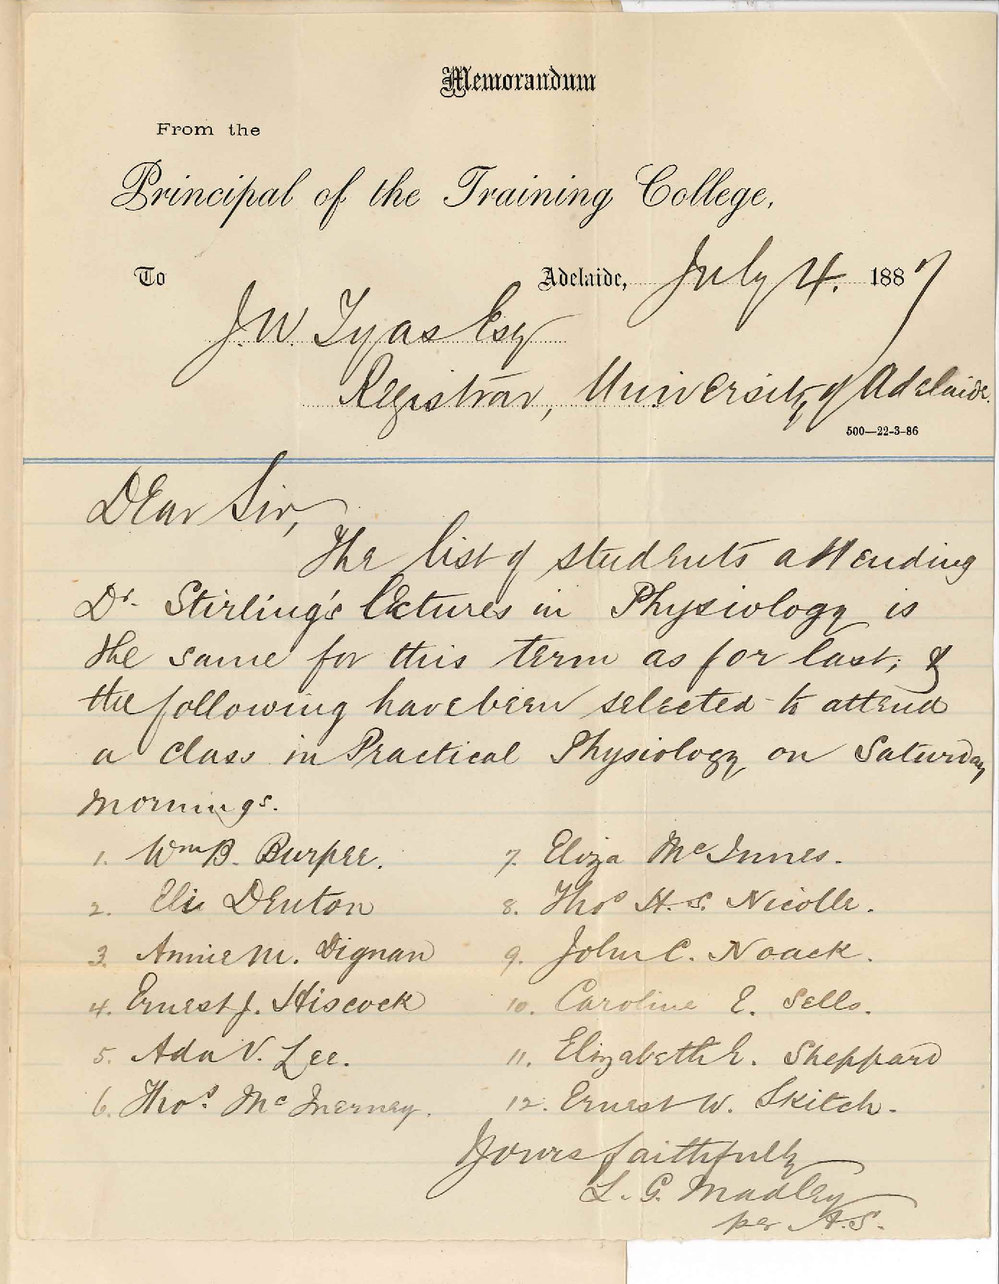 Memorandum
From the
Principal of the Training College,
To Adelaide, July 4. 1887
J. W. Tyas Esq
Registrar, University of Adelaide.
500—22-3-86
Dear Sir,
The list of students attending
Dr. Stirling's lectures in Physiology is
the same for this term as for last; &
the following have been selected to attend
a class in Practical Physiology on Saturday
mornings.
1. Wm B. Burpee.
2. Eli Denton
3. Annie M. Dignan
4. Ernest J. Hiscock
5. Ada V. Lee.
6. Thos. McInerney.
7. Eliza McInnes.
8. Thos H. S. Nicolle.
9. John C. Noack.
10. Caroline E. Sells.
11. Elizabeth E. Sheppard
12. Ernest W. Skitch.
Yours faithfully
L. G. Madley
per A.S.